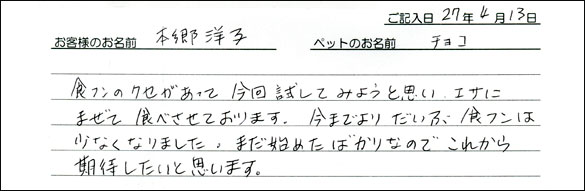 ご記入日 27年4月13日
お客様のお名前 本郷洋子 ペットのお名前 チョコ
食フンのクセがあって今回試してみようと思い、エサに
まぜて食べさせております。今までより だいぶ、食フンは
少なくなりました。まだ始めたばかりなのでこれから
期待したいと思います。